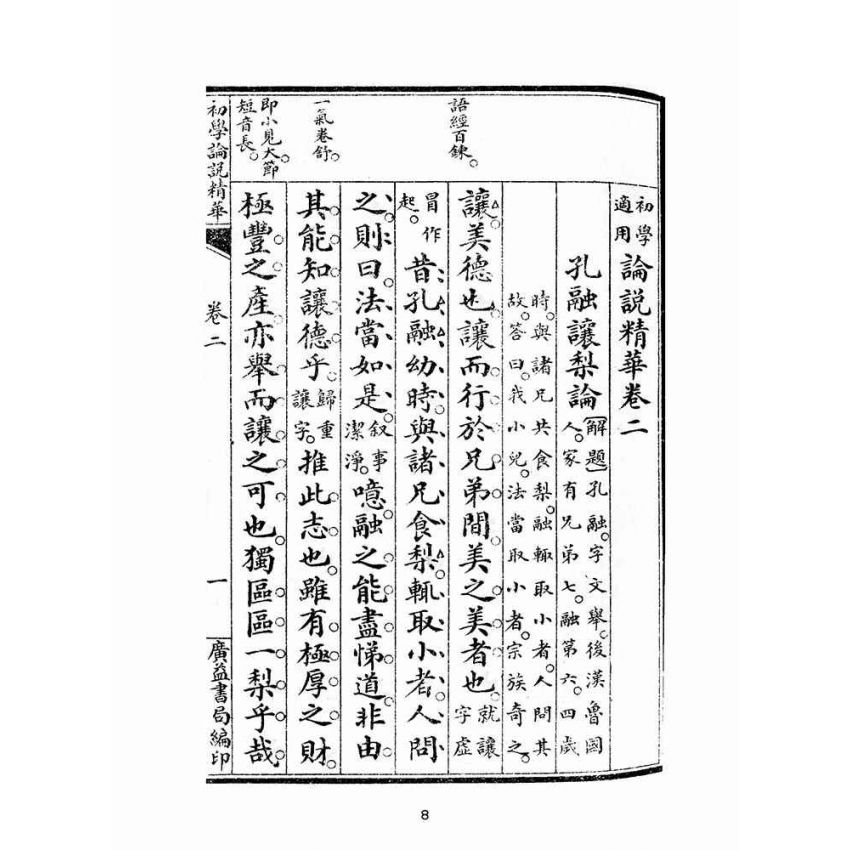 初學適用論說精華卷二
孔融讓梨論 解題 孔融。字文舉。後漢魯國
人。家有兄弟七。融第六。四歲
時。與諸兄共食梨。融輒取小者。人問其
故。答曰。我小兒。法當取小者。宗族奇之。
語經百鍊。
讓美德也讓而行於兄弟間美之美者也就讓字虛
冒作起。昔孔融幼時與諸兄食梨輒取小者人問
之則曰法當如是叙事潔淨。噫融之能盡悌道非由
一氣卷舒。
其能知讓德乎歸重讓字。推此志也雖有極厚之財
即小見大。節短音長。
極豐之產亦舉而讓之可也獨區區一梨乎哉
初學論說精華
卷二
一
廣益書局編印
8